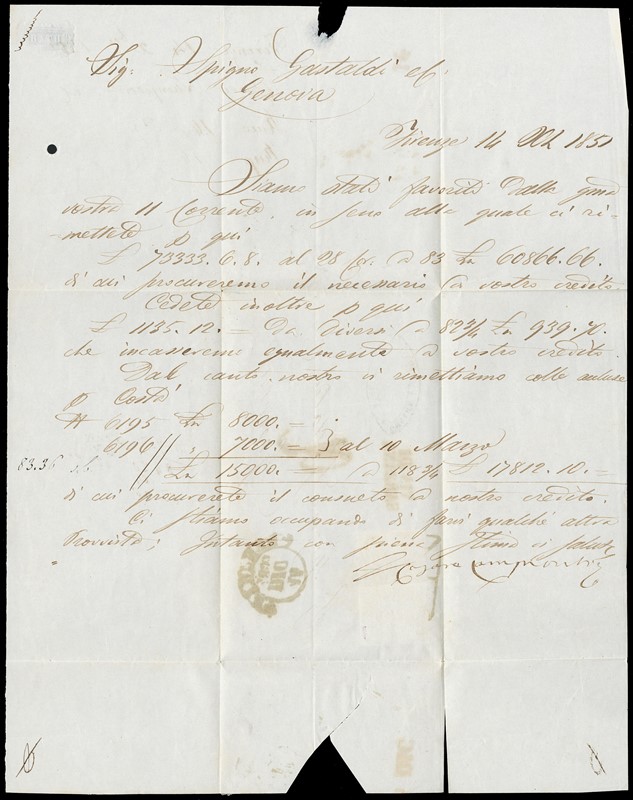 Sig. Spigno Gastaldi e C.
Genova
Firenze 14 1851
Siamo stati favoriti dalla grata
vostra 11 Corrente, in seno alla quale ci ri-
mettete p qui
£ 73333. 6. 8. al 28 a 83 Ln 60866. 66.
di cui procureremo il necessario vostro credito.
Cedete inoltre p qui
£ 1135. 12. = Da Diversi a 82¾ Ln 939. 70.
che incasseremo egualmente a vostro credito.
Dal canto nostro vi rimettiamo colle accluse
p Costà
6195 Ln 8000. =
6196 " 7000. = } al 10 Marzo
83.36 Ln 15000. = a 118¾ £ 17812. 10. =
di cui procurerete il consueto a nostro credito.
Ci stiamo occupando di farvi qualche altra
Provvista; Intanto con piena Stima vi saluta
DEC